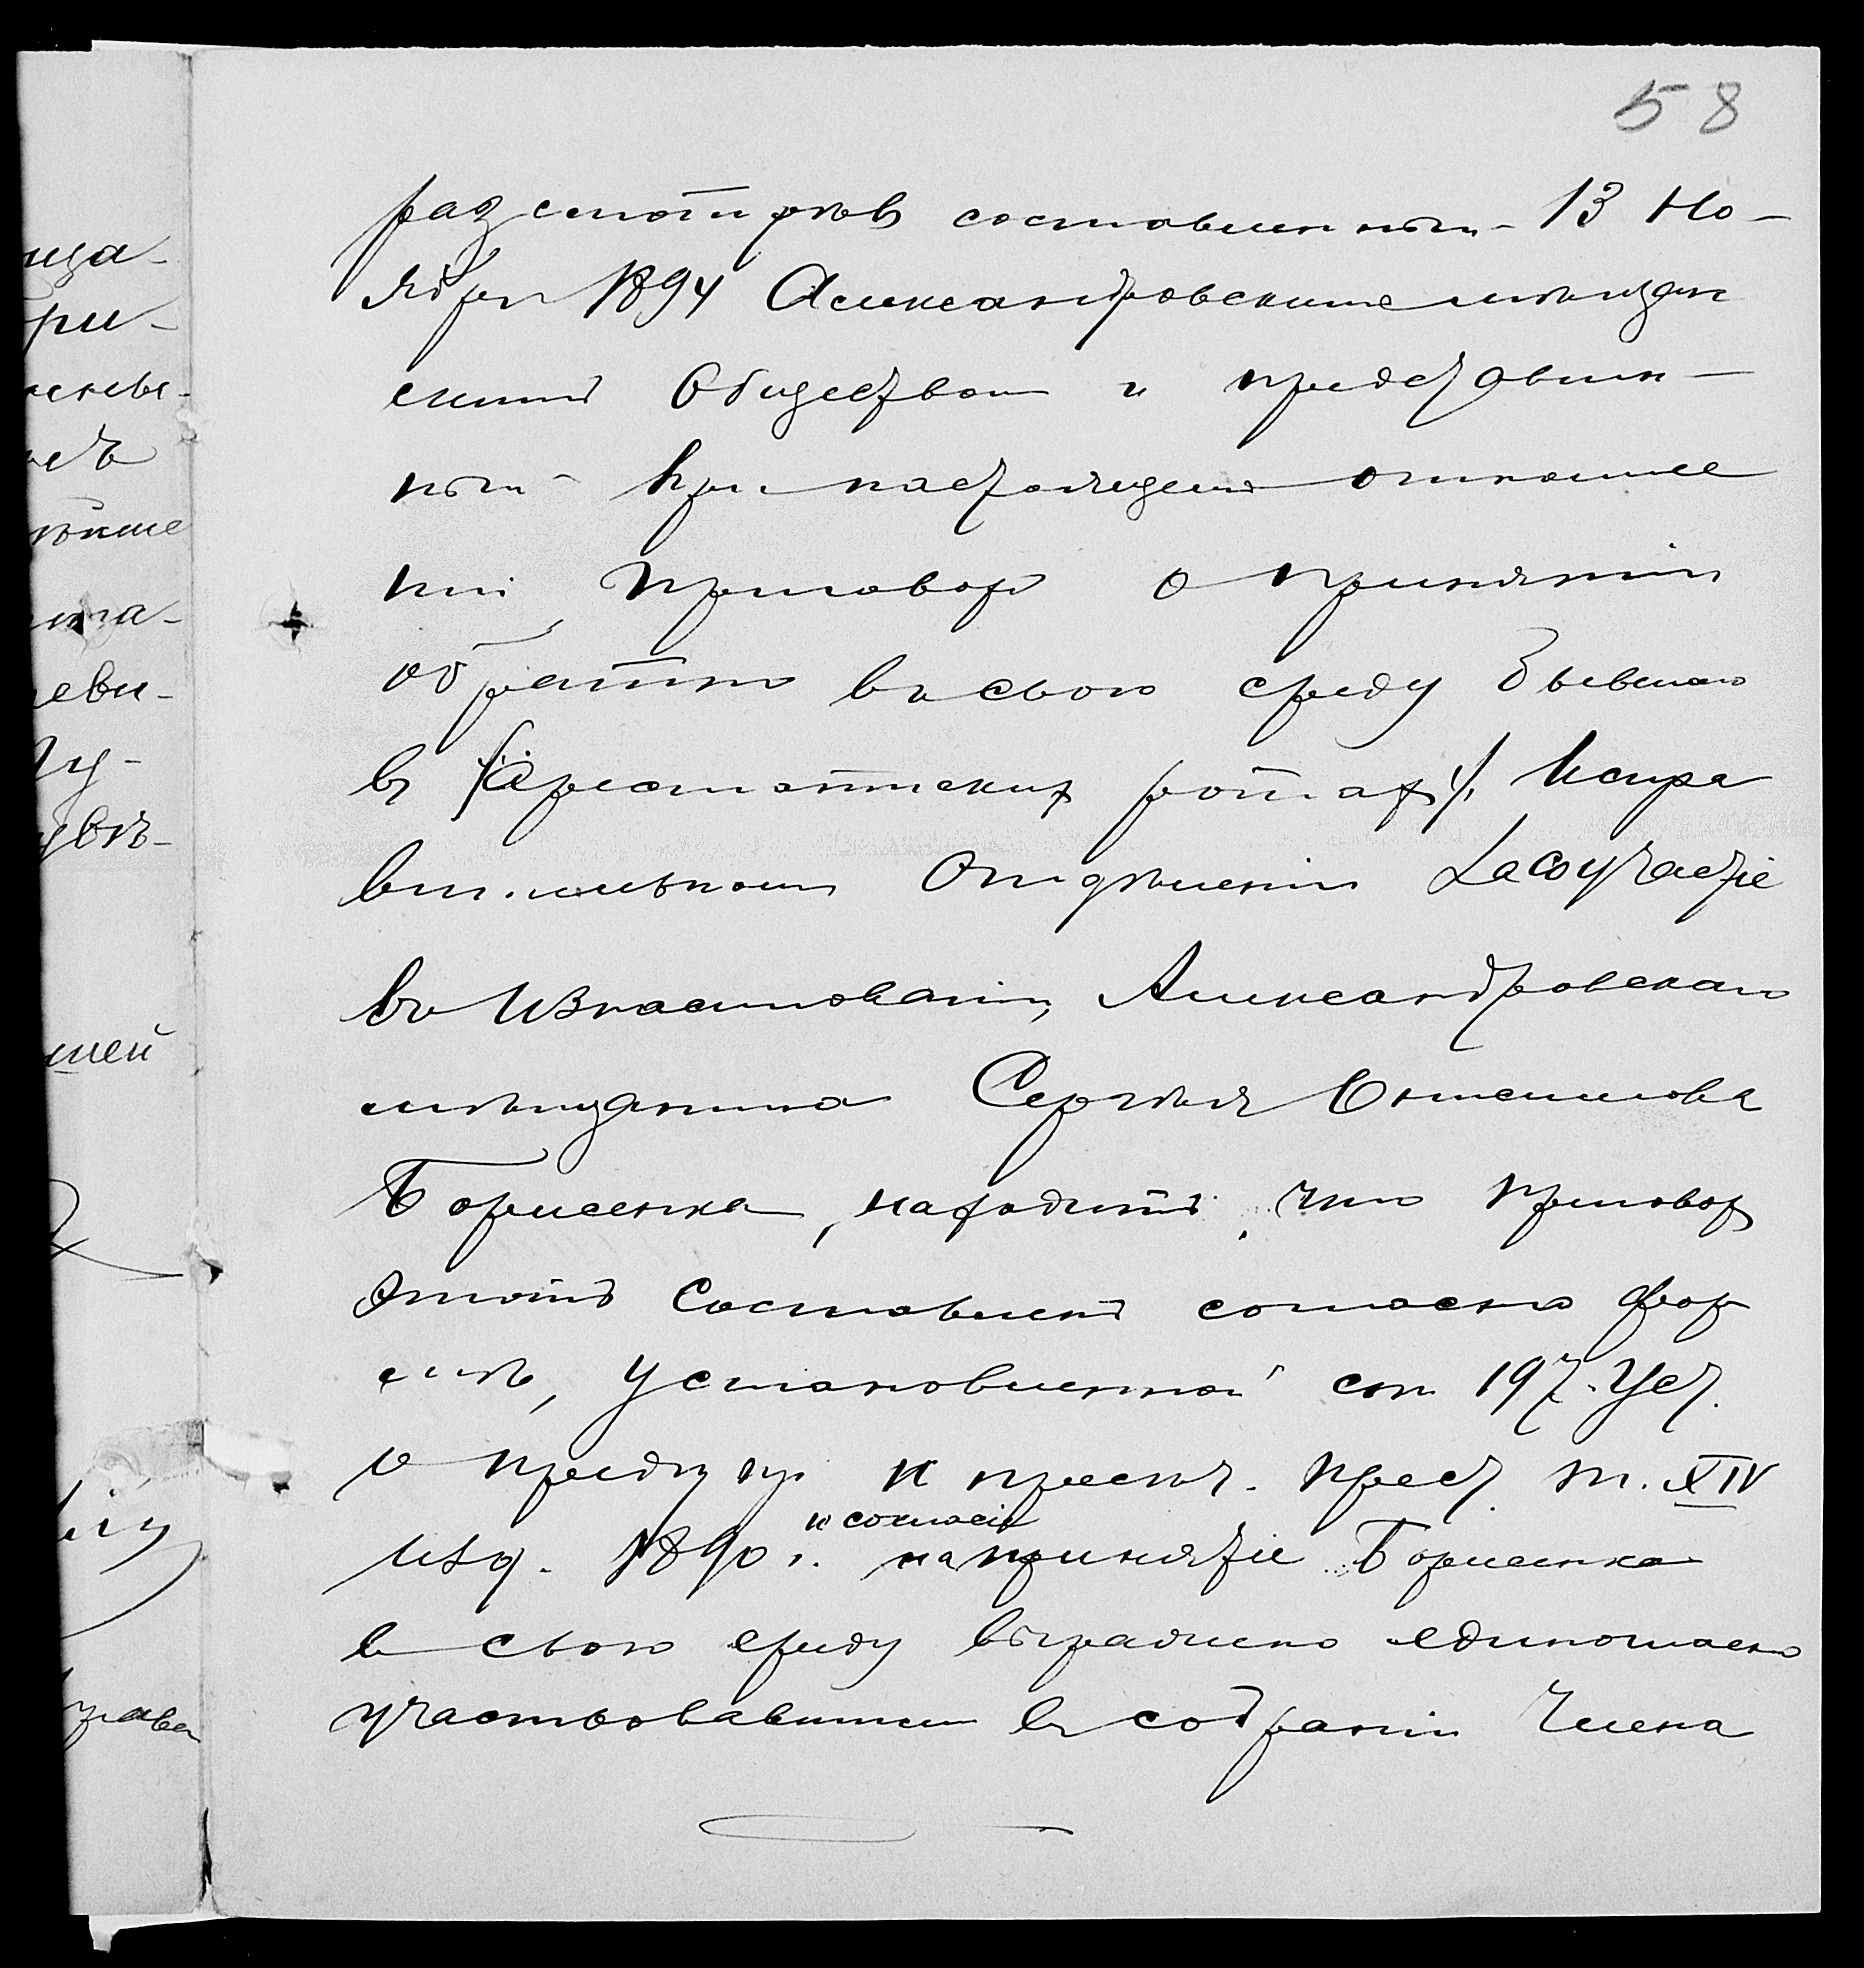 58
разсмотрѣвъ составленный 13 Но-
ября 1894 Александровскимъ мѣщан
скимъ Обществомъ и представлен-
ный при настоящемъ отноше
нiи приговоръ о принятiи
обратно въ свою среду бывшаго
въ /Арестантскихъ ротахъ/, Испра
вительномъ Отдѣленiи
въ Александровскаго
мѣщанина Сергѣя Онисимова
Борисенка, находитъ, что приговоръ
этотъ составленъ согласно фор
мѣ, установленной ст 197 Уст.
о предупр. и пресѣч. прест. т. XIV
и согласiе
изд. 1890 г. на принятiе Борисенка
в свою среду выражено единогласно
участвовавшими въ собранiи члена
ица-
ри-
ма-
еви-
ту-
увѣ-
шей